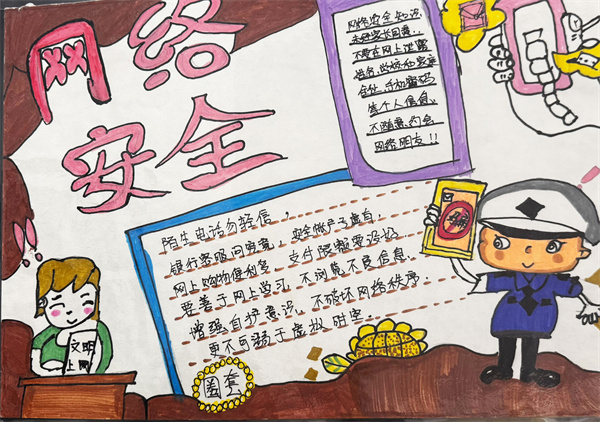 网络
安全
网络安全知识
未经家长同意，
不要在网上泄露
姓名、学校和家庭
住址、手机号码
等个人信息。
不随意约会
网络朋友！！
陌生电话勿轻信，
银行客服问究竟，安全帐户子虚有，
网上购物便利多
支付限额要设好
要善于网上学习，不浏览不良信息，
增强自护意识，不破坏网络秩序，
更不可溺于虚拟时空。
文明
上网
圈套